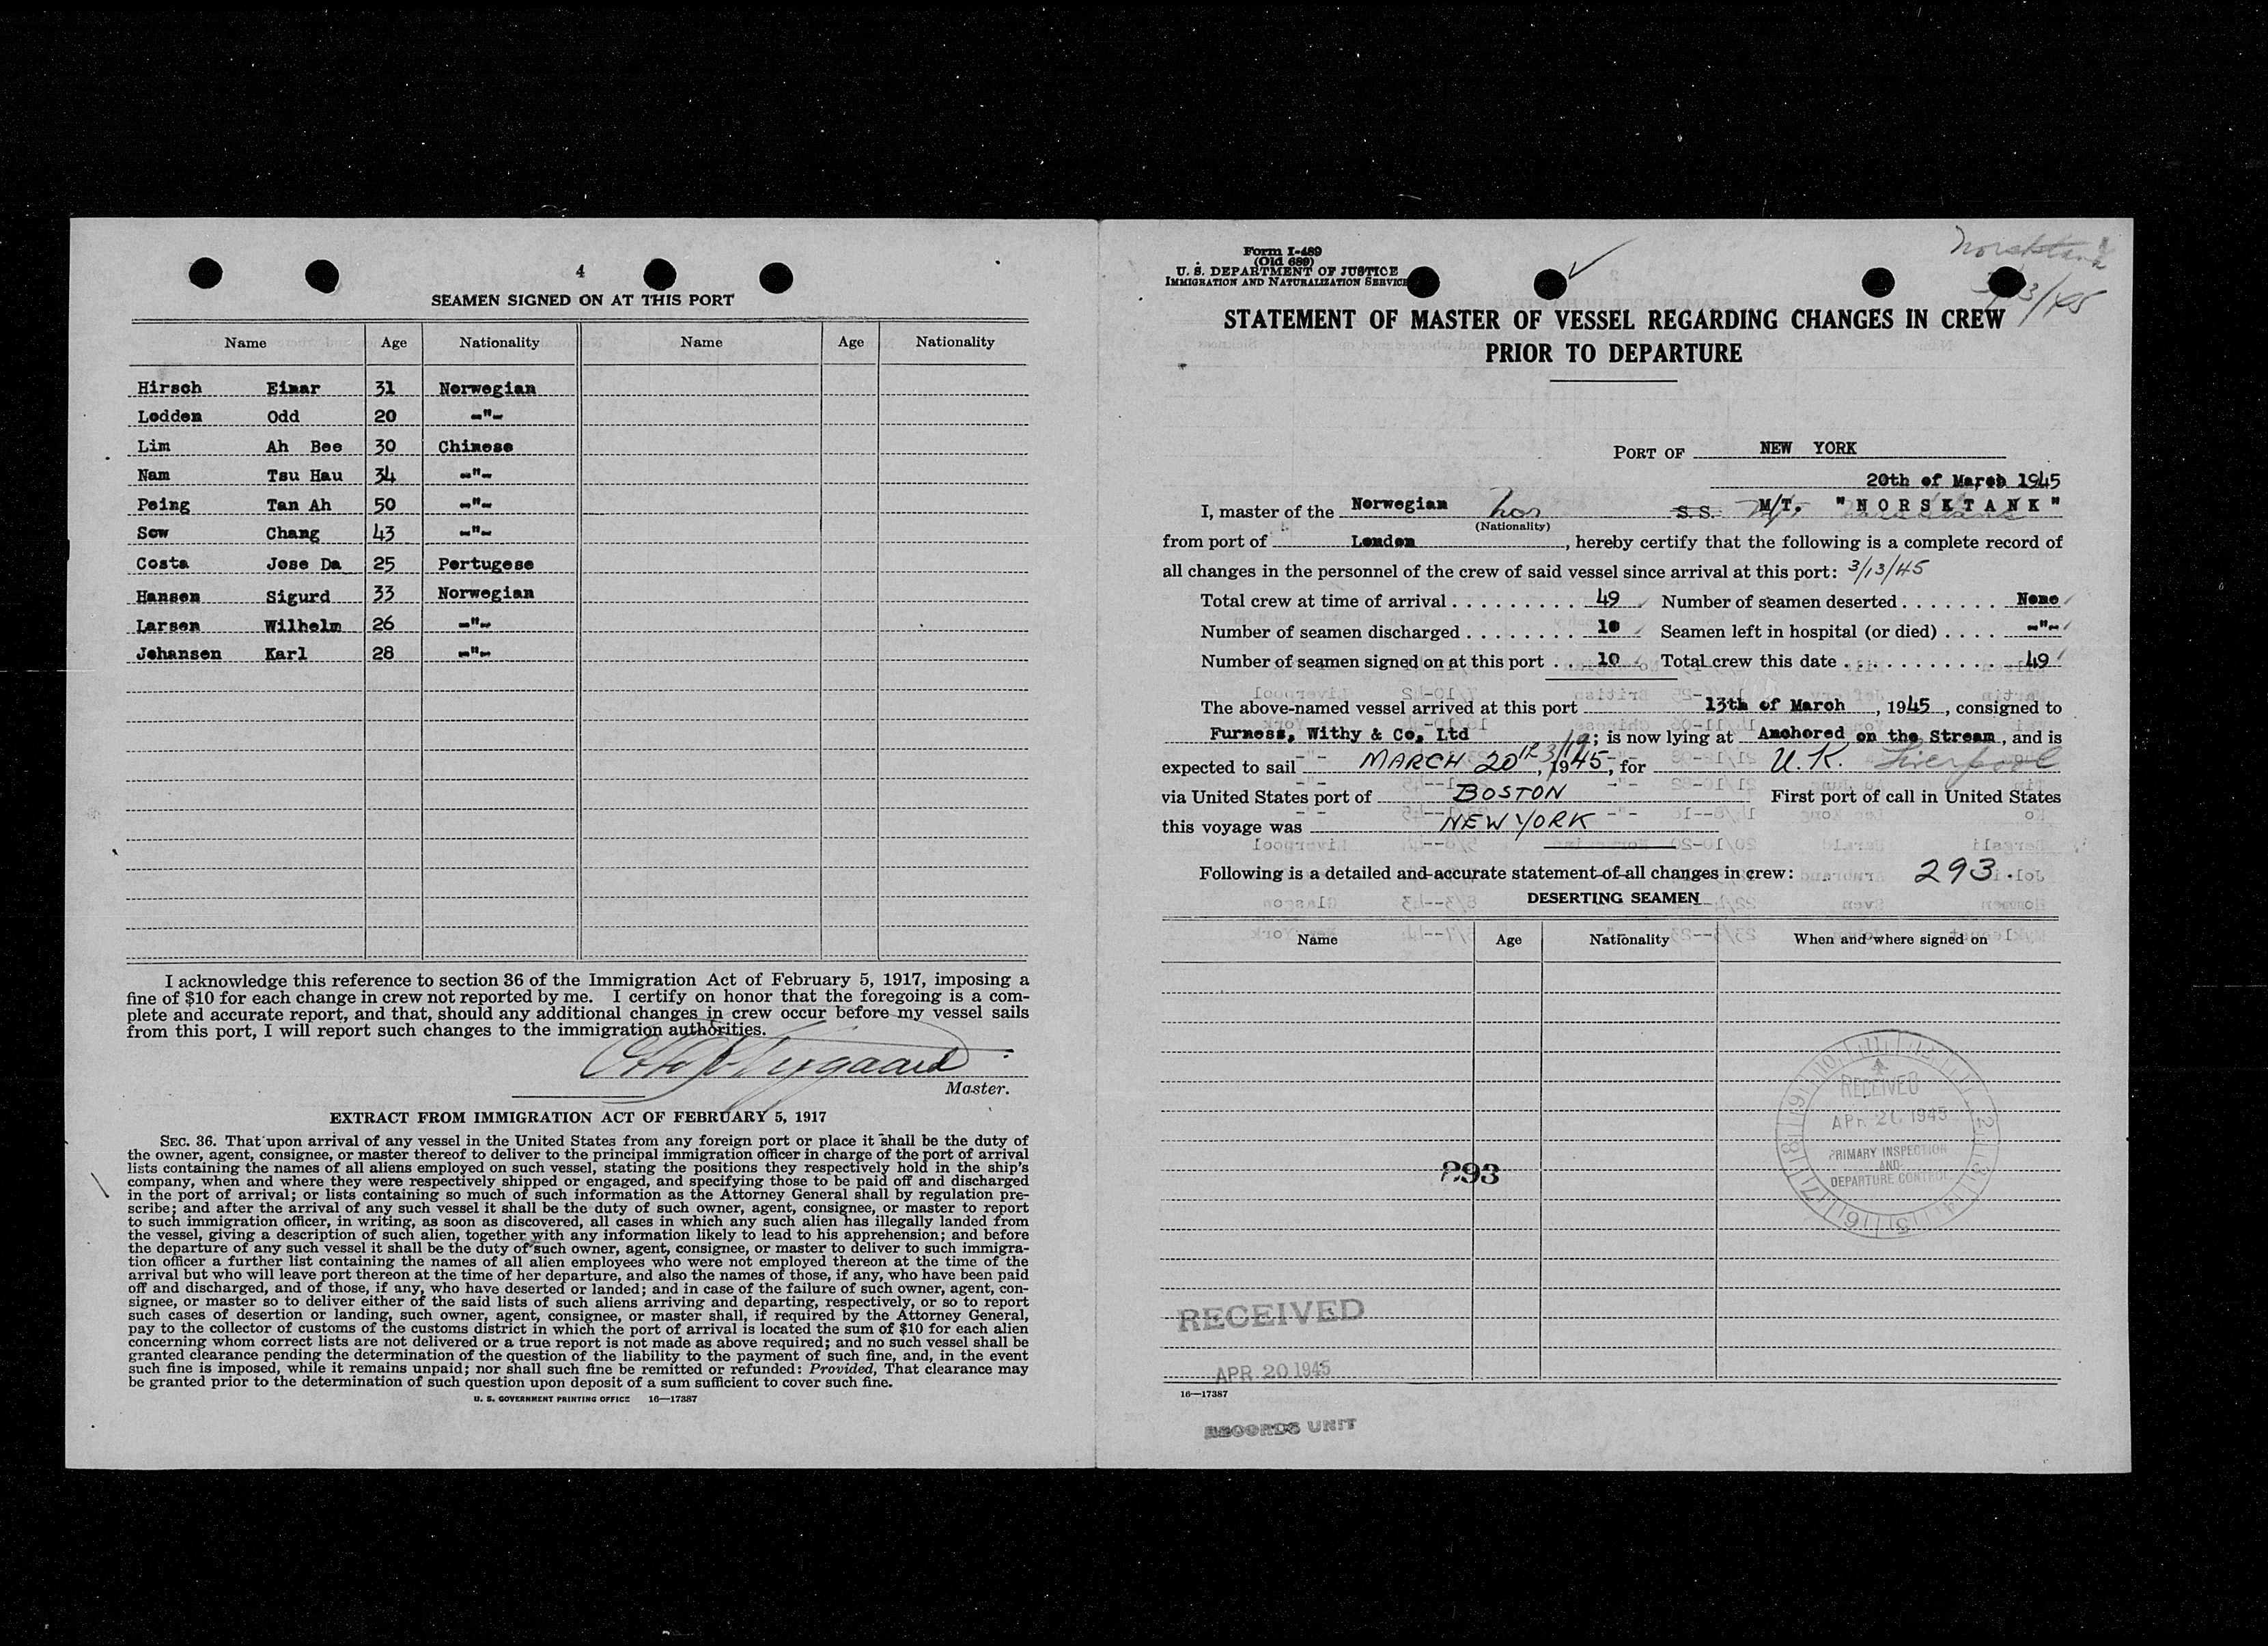 4
SEAMEN SIGNED ON AT THIS PORT
Name Age Nationality Name Age Nationality
Hirsch Einar 31 Norwegian
Lodden Odd 20 -"-
Lim Ah Bee 30 Chinese
Nam Tsu Hau 34 -"-
Peing Tan Ah 50 -"-
Sow Chang 43 -"-
Costa Jose Da 25 Portugese
Hansen Sigurd 33 Norwegian
Larsen Wilhelm 26 -"-
Johansen Karl 28 -"-
I acknowledge this reference to section 36 of the Immigration Act of February 5, 1917, imposing a
fine of $10 for each change in crew not reported by me. I certify on honor that the foregoing is a com-
plete and accurate report, and that, should any additional changes in crew occur before my vessel sails
from this port, I will report such changes to the immigration authorities.
Nygaard
Master.
EXTRACT FROM IMMIGRATION ACT OF FEBRUARY 5, 1917
SEC. 36. That upon arrival of any vessel in the United States from any foreign port or place it shall be the duty of
the owner, agent, consignee, or master thereof to deliver to the principal immigration officer in charge of the port of arrival
lists containing the names of all aliens employed on such vessel, stating the positions they respectively hold in the ship's
company, when and where they were respectively shipped or engaged, and specifying those to be paid off and discharged
in the port of arrival; or lists containing so much of such information as the Attorney General shall by regulation pre-
scribe; and after the arrival of any such vessel it shall be the duty of such owner, agent, consignee, or master to report
to such immigration officer, in writing, as soon as discovered, all cases in which any such alien has illegally landed from
the vessel, giving a description of such alien, together with any information likely to lead to his apprehension; and before
the departure of any such vessel it shall be the duty of such owner, agent, consignee, or master to deliver to such immigra-
tion officer a further list containing the names of all alien employees who were not employed thereon at the time of the
arrival but who will leave port thereon at the time of her departure, and also the names of those, if any, who have been paid
off and discharged, and of those, if any, who have deserted or landed; and in case of the failure of such owner, agent, con-
signee, or master so to deliver either of the said lists of such aliens arriving and departing, respectively, or so to report
such cases of desertion or landing, such owner, agent, consignee, or master shall, if required by the Attorney General,
pay to the collector of customs of the customs district in which the port of arrival is located the sum of $10 for each alien
concerning whom correct lists are not delivered or a true report is not made as above required; and no such vessel shall be
granted clearance pending the determination of the question of the liability to the payment of such fine, and, in the event
such fine is imposed, while it remains unpaid; nor shall such fine be remitted or refunded: Provided, That clearance may
be granted prior to the determination of such question upon deposit of a sum sufficient to cover such fine.
U. S. GOVERNMENT PRINTING OFFICE 16—17387
Form I-489
(Old 689)
U. S. DEPARTMENT OF JUSTICE
IMMIGRATION AND NATURALIZATION SERVICE
Norsktank
3/13/45
STATEMENT OF MASTER OF VESSEL REGARDING CHANGES IN CREW
PRIOR TO DEPARTURE
PORT OF NEW YORK
20th of March 1945
I, master of the Norwegian Nor S. S. M/T. "NORSKTANK"
(Nationality)
from port of London, hereby certify that the following is a complete record of
all changes in the personnel of the crew of said vessel since arrival at this port: 3/13/45
Total crew at time of arrival . . . . . . . . . 49 Number of seamen deserted . . . . . . . None
Number of seamen discharged . . . . . . . . 10 Seamen left in hospital (or died) . . . . -"-
Number of seamen signed on at this port . . 10 Total crew this date . . . . . . . . . . . 49
The above-named vessel arrived at this port 13th of March, 1945, consigned to
Furness, Withy & Co. Ltd; is now lying at Anchored on the Stream, and is
expected to sail MARCH 20th, 1945, for U.K. Liverpool
via United States port of BOSTON First port of call in United States
this voyage was NEW YORK
Following is a detailed and accurate statement of all changes in crew: 293.
DESERTING SEAMEN
Name Age Nationality When and where signed on
RECEIVED
APR 20 1945
PRIMARY INSPECTION
AND
DEPARTURE CONTROL
893
RECEIVED
APR 20 1945
16—17387
RECORDS UNIT